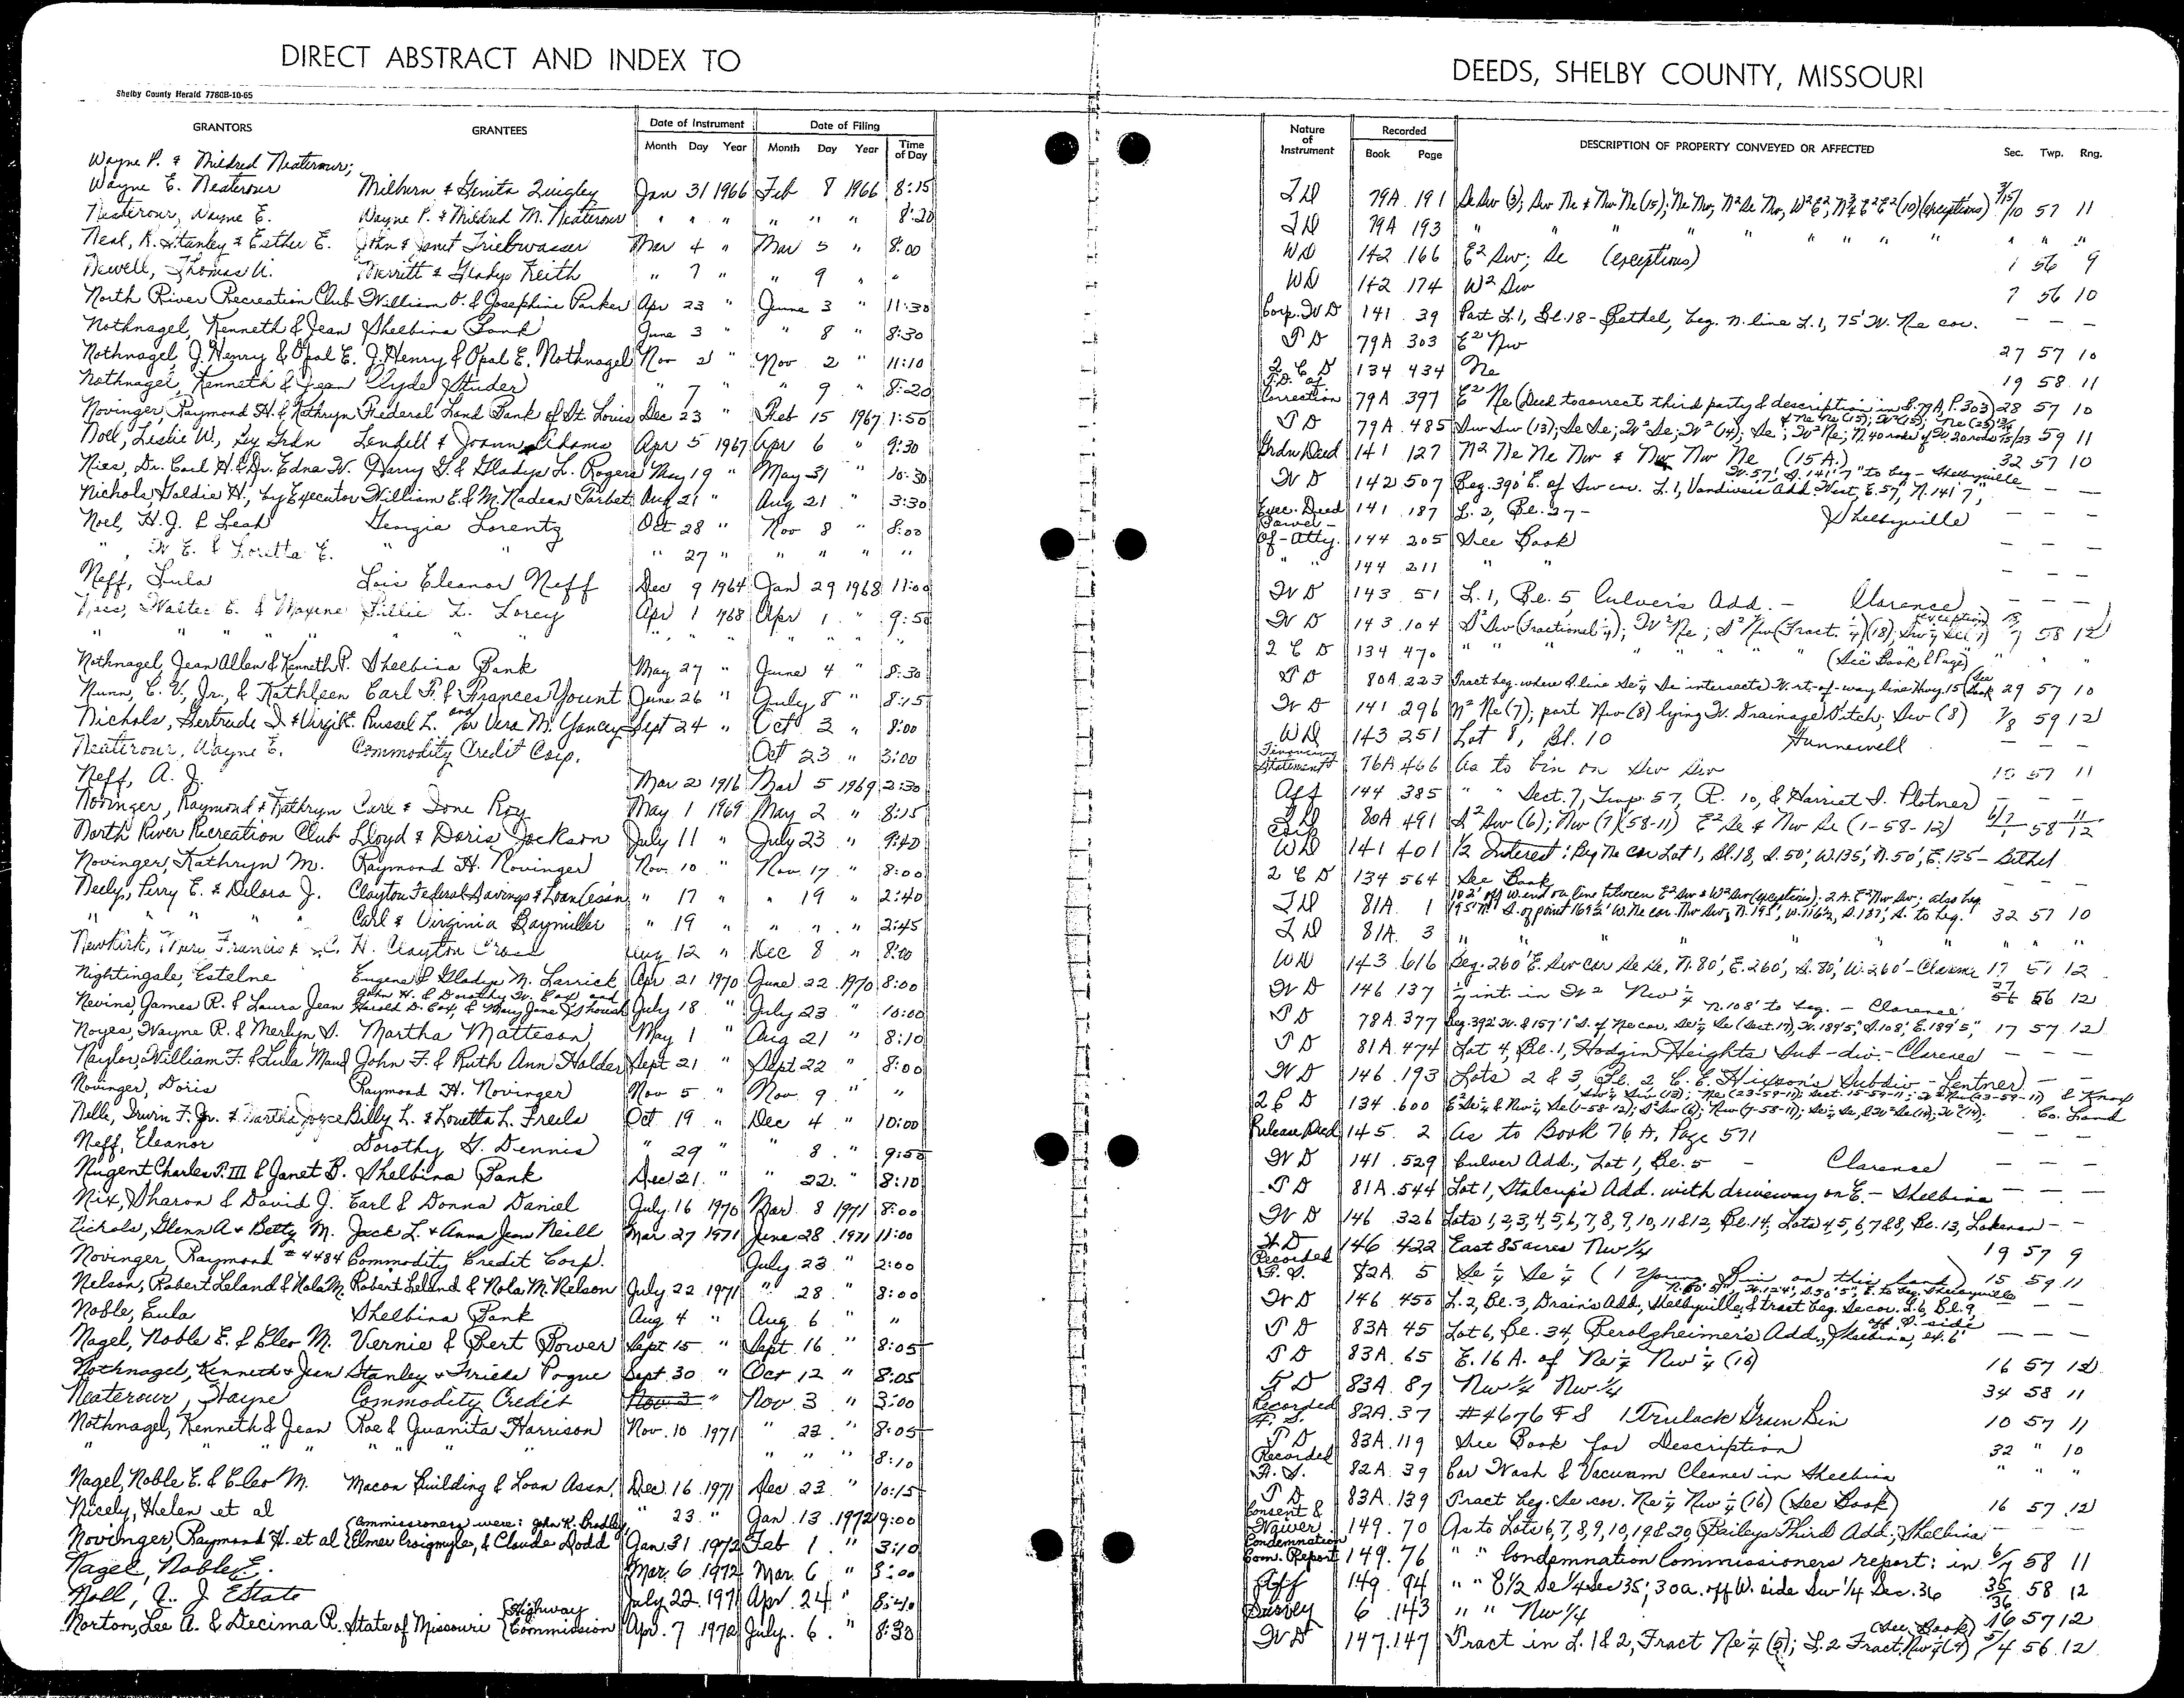 DIRECT ABSTRACT AND INDEX TO
DEEDS, SHELBY COUNTY, MISSOURI
Shelby County Herald 7780B-10-65
GRANTORS GRANTEES Date of Instrument Month Day Year Date of Filing Month Day Year Time of Day Nature of Instrument Recorded Book Page DESCRIPTION OF PROPERTY CONVEYED OR AFFECTED Sec. Twp. Rng.
Wayne P. & Mildred Neaterour;
Wayne E. Neaterour Milburn & Genita Quigley Jan 31 1966 Feb 8 1966 8:15 79A 191 Se Sw (3); Sw Ne & Nw Ne (15); Ne Nw, N² Se Nw, W² E², E² E² (10) (exceptions) 3/15/10 57 11
Neaterour, Wayne E. Wayne P. & Mildred M. Neaterour " " " " " " 8:20 79A 193 " " " " " " " " " "
Neal, R. Stanley & Esther E. John & Janet Triebwasser Mar 4 " Mar 5 " 8:00 WD 142 166 E² Sw; Se (exceptions) 1 56 9
Newell, Thomas U. Merritt & Gladys Keith " 7 " " 9 " " WD 142 174 W² Sw 7 56 10
North River Recreation Club William O. & Josephine Parker Apr 23 " June 3 " 11:30 Corp. WD 141 39 Part L.1, Bl.18 - Bethel, beg. N. line L.1, 75' W. Ne cor. — — —
Nothnagel, Kenneth & Jean Shelbina Bank June 3 " " 8 " 8:30 79A 303 E² Nw 27 57 10
Nothnagel, J. Henry & Opal E. J. Henry & Opal E. Nothnagel Nov 2 " Nov 2 " 11:10 2 C D 134 434 Ne 19 58 11
Nothnagel, Kenneth & Jean Clyde Studer " 7 " " 9 " 8:20 T.D. of Correction 79A 397 E² Ne (Deed to correct third party & description in B. 79A, P. 303) 28 57 10
Novinger, Raymond H. & Kathryn Federal Land Bank of St. Louis Dec 23 " Feb 15 1967 1:50 79A 485 Sw Sw (13); Se Se; W² Se; W² (14); Se; W² Ne; 59 11
Noll, Leslie W, by Grdn Lendell & Joann Adams Apr 5 1967 Apr 6 " 9:30 Grdn Deed 141 127 N² Ne Ne Nw & Nw Nw Ne (15 A.) 32 57 10
Nies, Dr. Carl H. & Dr. Edna W. Harry G. & Gladys L. Rogers May 19 " May 31 " 10:30 W D 142 507 Beg. 390' E. of Sw cor. L.1, Vandiver's Add. West, E. 57', N. 141' 7", W. 57', S. 141' 7" to beg - Shelbyville — —
Nichols, Goldie H., by Executor William E. & M. Nadean Tarbet Aug 21 " Aug 21 " 3:30 Exec. Deed 141 187 L. 2, Bl. 27 - Shelbyville — — —
Noel, H.J. & Leah Georgia Lorentz Oct 28 " Nov 8 " 8:00 Power-of-Atty. 144 205 See Book — — —
", W. E. & Loretta E. " " " 27 " " " " " " 144 211 " " — — —
Neff, Lula Lois Eleanor Neff Dec 9 1964 Jan 29 1968 11:00 W D 143 51 L. 1, Bl. 5, Culver's Add. - Clarence — — —
Walter E. & Maxine Lillie L. Lorey Apr 1 1968 Apr 1 " 9:50 W D 143 104 S² Sw (Fractional ¼); W² Ne; S² Nw (Fract. ¼) (18); 58 12
" " " " " " " " 2 C D 134 470 " " " " " " " "
Nothnagel, Jean Allen & Kenneth P. Shelbina Bank May 27 " June 4 " 8:30 80A 223 Tract beg. where S. line Se¼ Se intersects W. rt-of-way line Hwy. 15 (See Book & Page) 29 57 10
Nunn, C. V., Jr., & Kathleen Carl F. & Frances Yount June 26 " July 8 " 8:15 W D 141 296 N² Ne (7); part Nw (8) lying W. Drainage Ditch; Sw (8) 7/8 59 12
Nichols, Gertrude I. & Virgil E. Russel L. and/or Vera M. Yancey Sept 24 " Oct 2 " 8:00 WD 143 251 Lot 8, Bl. 10 Hunnewell — — —
Neaterour, Wayne E. Commodity Credit Corp. Oct 23 " 3:00 Financing Statement 76A 466 As to bin on Sw Sw 10 57 11
Neff, A. J. Mar 2 1916 Mar 5 1969 2:30 Aff 144 385 " " Sect. 7, Twp. 57, R. 10, & Harriet S. Plotner — — —
Novinger, Raymond & Kathryn Carl & Ione Roy May 1 1969 May 2 " 8:15 80A 491 S² Sw (6); Nw (7) (58-11) E² Se & Nw Se (1-58-12) 6/7/1 58 11/12
North River Recreation Club Lloyd & Doris Jackson July 11 " July 23 " 9:40 Corp WD 141 401 1/2 Interest: Beg Ne cor Lot 1, Bl.18, S.50', W.135', N.50', E.135' - Bethel
Novinger, Kathryn M. Raymond H. Novinger Nov. 10 " Nov. 17 " 8:00 2 C D 134 564 See Book — — —
Neely, Perry E. & Delora J. Clayton Federal Savings & Loan Ass'n " 17 " " 19 " 2:40 81A 1 32 57 10
" " " " Carl & Virginia Baymiller " 19 " " " " 2:45 81A 3 " " " " " " "
Newkirk, Francis & H. Clayton Aug 12 " Dec 8 " 8:00 WD 143 616 Beg. 260' E. Sw cor Se Se, N. 80', E. 260', S. 80', W. 260' - Clarence 17 57 12
Nightingale, Estelne Eugene & Gladys M. Larrick Apr 21 1970 June 22 1970 8:00 W D 146 137 int. in W² Nw¼ 56 12
Nevins, James R. & Laura Jean John H. & Dorothy W. Cox, and Harold D. Cox, & Mary Jane July 18 " July 23 " 10:00 78A 377 Beg. 392' W. & 157' 1" S. of Ne cor, Se¼ Se (Sect. 17), W. 189'5", S. 108', E. 189'5", N. 108' to beg. - Clarence 17 57 12
Noyes, Wayne R. & Merlyn S. Martha Matteson May 1 " Aug 21 " 8:10 81A 474 Lot 4, Bl. 1, Hodgin Heights Sub-div. - Clarence — — —
Naylor, William F. & Lula Maud John F. & Ruth Ann Holder Sept 21 " Sept 22 " 8:00 W D 146 193 Lots 2 & 3, Bl. 2, C. E. Hixson's Subdiv - Lentner — —
Novinger, Doris Raymond H. Novinger Nov 5 " Nov. 9 " " 2 C D 134 600 & Knox Co. Land
Nelle, Irwin F. Jr. & Martha Joyce Billy L. & Louetta L. Freels Oct 19 " Dec 4 " 10:00 Release Deed 145 2 As to Book 76A, Page 571 — — —
Neff, Eleanor Dorothy G. Dennis " 29 " " 8 " 9:50 W D 141 529 Culver Add., Lot 1, Bl. 5 - Clarence — — —
Nugent Charles P. III & Janet B. Shelbina Bank Dec 21 " " 22 " 8:10 81A 544 Lot 1, Stalcup's Add. with driveway on E. - Shelbina — — —
Nix, Sharon & David J. Earl & Donna Daniel July 16 1970 Mar. 8 1971 8:00 W D 146 326 Lots 1,2,3,4,5,6,7,8,9,10,11&12, Bl.14, Lots 4,5,6,7&8, Bl. 13, Lakenan - -
Nichols, Glenn A & Betty M. Jack L. & Anna Jean Neill Mar 27 1971 June 28 1971 11:00 W D 146 422 East 85 acres Nw 1/4 19 57 9
Novinger, Raymond #4484 Commodity Credit Corp. July 23 " 2:00 Recorded F. S. 82A 5 Se ¼ Se ¼ (1 Young Bin on this land) 15 59 11
Nelson, Robert Leland & Nola M. Robert Leland & Nola M. Nelson July 22 1971 " 28 " 8:00 W D 146 450 L. 2, Bl. 3, Drain's Add., Shelbyville, & tract beg. Se cor. L. 6, Bl. 9, — —
Noble, Eula Shelbina Bank Aug 4 " Aug. 6 " " 83A 45 Lot 6, Bl. 34, Berolzheimer's Add., Shelbina, ex. 6' off S. side — — —
Nagel, Noble E. & Cleo M. Vernie & Bert Bower Sept 15 " Sept. 16 " 8:05 83A 65 E. 16 A. of Ne¼ Nw¼ (16) 16 57 12
Nothnagel, Kenneth & Jean Stanley & Frieda Pogue Sept. 30 " Oct 12 " 8:05 83A 87 Nw¼ Nw¼ 34 58 11
Neaterour, Wayne Commodity Credit Nov 3 " Nov. 3 " 3:00 Recorded F. S. 82A 37 #4676 FS 1 Trulock Grain Bin 10 57 11
Nothnagel, Kenneth & Jean Roe & Juanita Harrison Nov. 10 1971 " 22 " 8:05 83A 119 See Book for Description 32 " 10
" " " " " " " " " 8:10 Recorded F. S. 82A 39 Car Wash & Vacuum Cleaner in Shelbina " " "
Nagel, Noble E. & Cleo M. Macon Building & Loan Assn. Dec. 16 1971 Dec. 23 " 10:15 83A 139 Tract beg. Se cor. Ne¼ Nw¼ (16) (See Book) 16 57 12
Nicely, Helen et al " 23 " Jan. 13 1972 9:00 Consent & Waiver 149 70 As to Lots 6, 7, 8, 9, 10, 19 & 20, Bailey's Third Add., Shelbina — — —
Novinger, Raymond H. et al (Commissioners were: John K. Bradley, Elmer Craigmyle, & Claude Dodd Jan 31 1972 Feb 1 " 3:10 Condemnation Com. Report 149 76 " " Condemnation Commissioners report: in 6/7 58 11
Nagel, Noble E. Mar. 6 1972 Mar. 6 " 3:00 Aff 149 94 " " E 1/2 Se 1/4 Sec 35; 30a. off W. side Sw 1/4 Sec. 36 35/36 58 12
Noll, A. J. Estate July 22 1971 Apr. 24 " 8:40 Survey 6 143 " " Nw 1/4 16 57 12
Norton, Lee A. & Decima R. State of Missouri (Highway Commission Apr. 7 1972 July 6 " 8:30 W D 147 147 Tract in L. 1 & 2, Fract Ne¼ (5); L. 2 Fract. Nw¼ (4) (See Book) 5/4 56 12